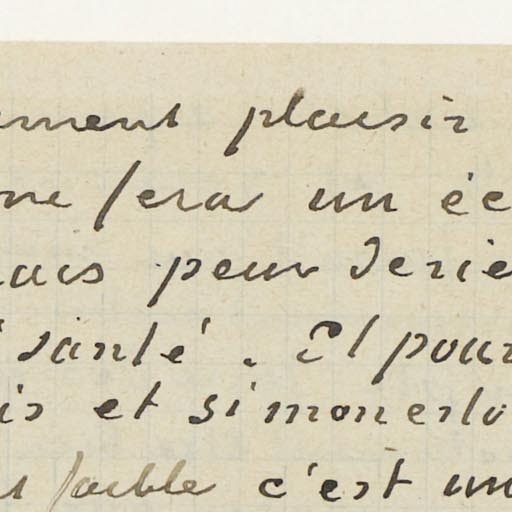 ement plaisir
me fera un éc
ais peur serie
santé. Et pour
is et si mon esto
faible c'est un